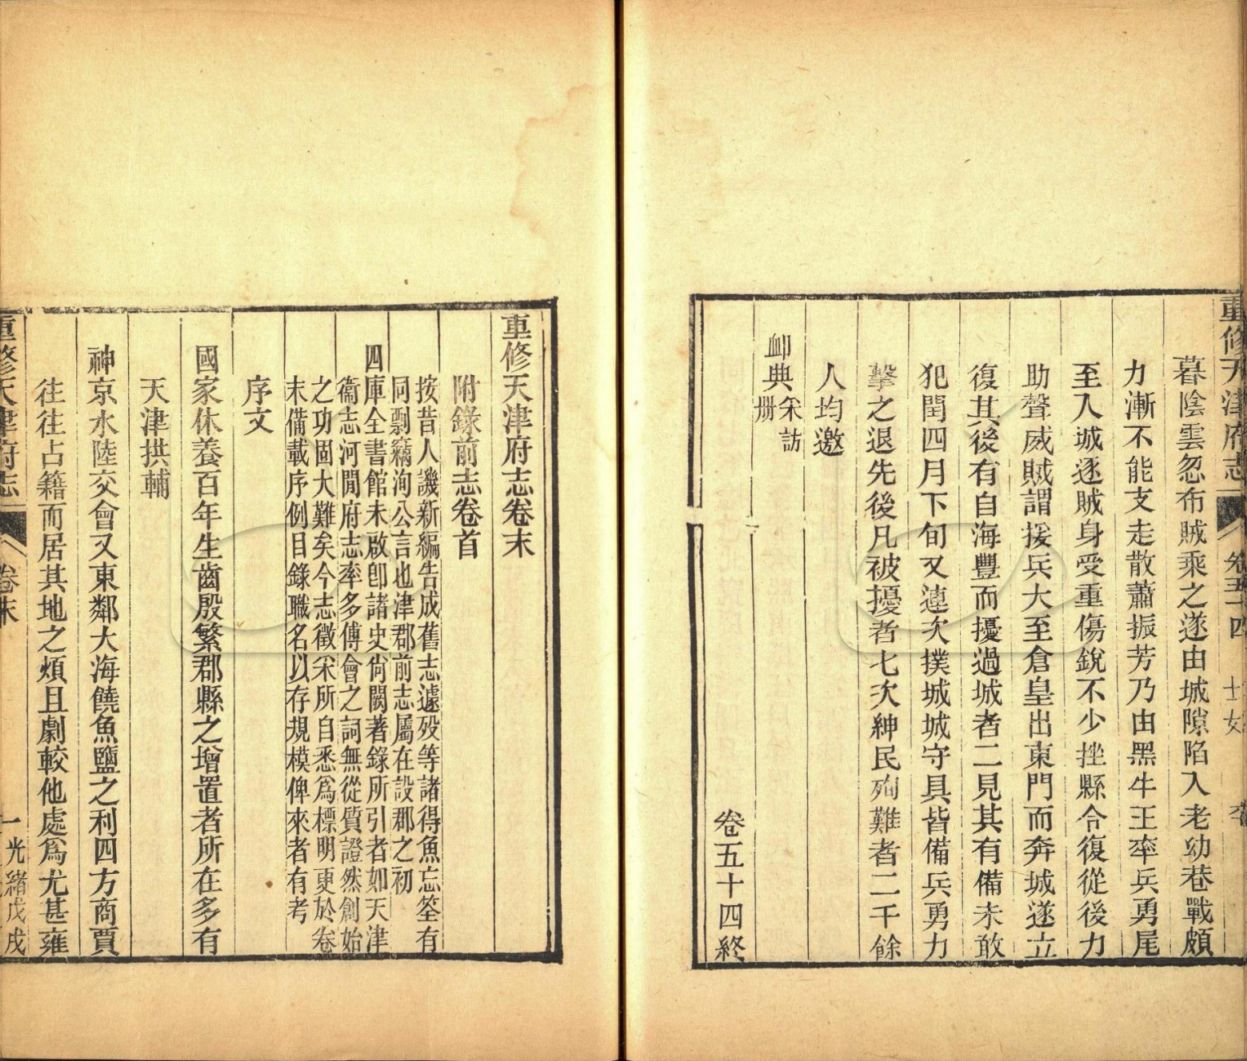 重修天津府志 卷五十四
暮陰雲忽布賊乘之遂由城隙陷入老幼巷戰頗
力漸不能支走散蕭振芳乃由黑牛王率兵勇尾
至入城逐賊身受重傷銳不少挫縣令復從後力
助聲威賊謂援兵大至倉皇出東門而奔城遂立
復其後有自海豐而擾過城者二見其有備未敢
犯閏四月下旬又連次撲城城守具皆備兵勇力
擊之退先後凡被擾者七次紳民殉難者二千餘
人均邀
卹典采訪冊
卷五十四終
重修天津府志卷末
附錄前志卷首
按昔人譏新編告成舊志遽歿等諸得魚忘筌有
同剽竊洵公言也津郡前志屬在設郡之初
四庫全書館未啟卽諸史尙闕著錄所引者如天津
衞志河閒府志率多傅會之詞無從質證然創始
之功固大難矣今志徵采所自悉爲標明更於卷
末備載序例目錄職名以存規模俾來者有考
序文
國家休養百年生齒殷繁郡縣之增置者所在多有
天津拱輔
神京水陸交會又東鄰大海饒魚鹽之利四方商賈
往往占籍而居其地之煩且劇較他處爲尤甚雍
重修天津府志 卷末 一 光緖戊戌